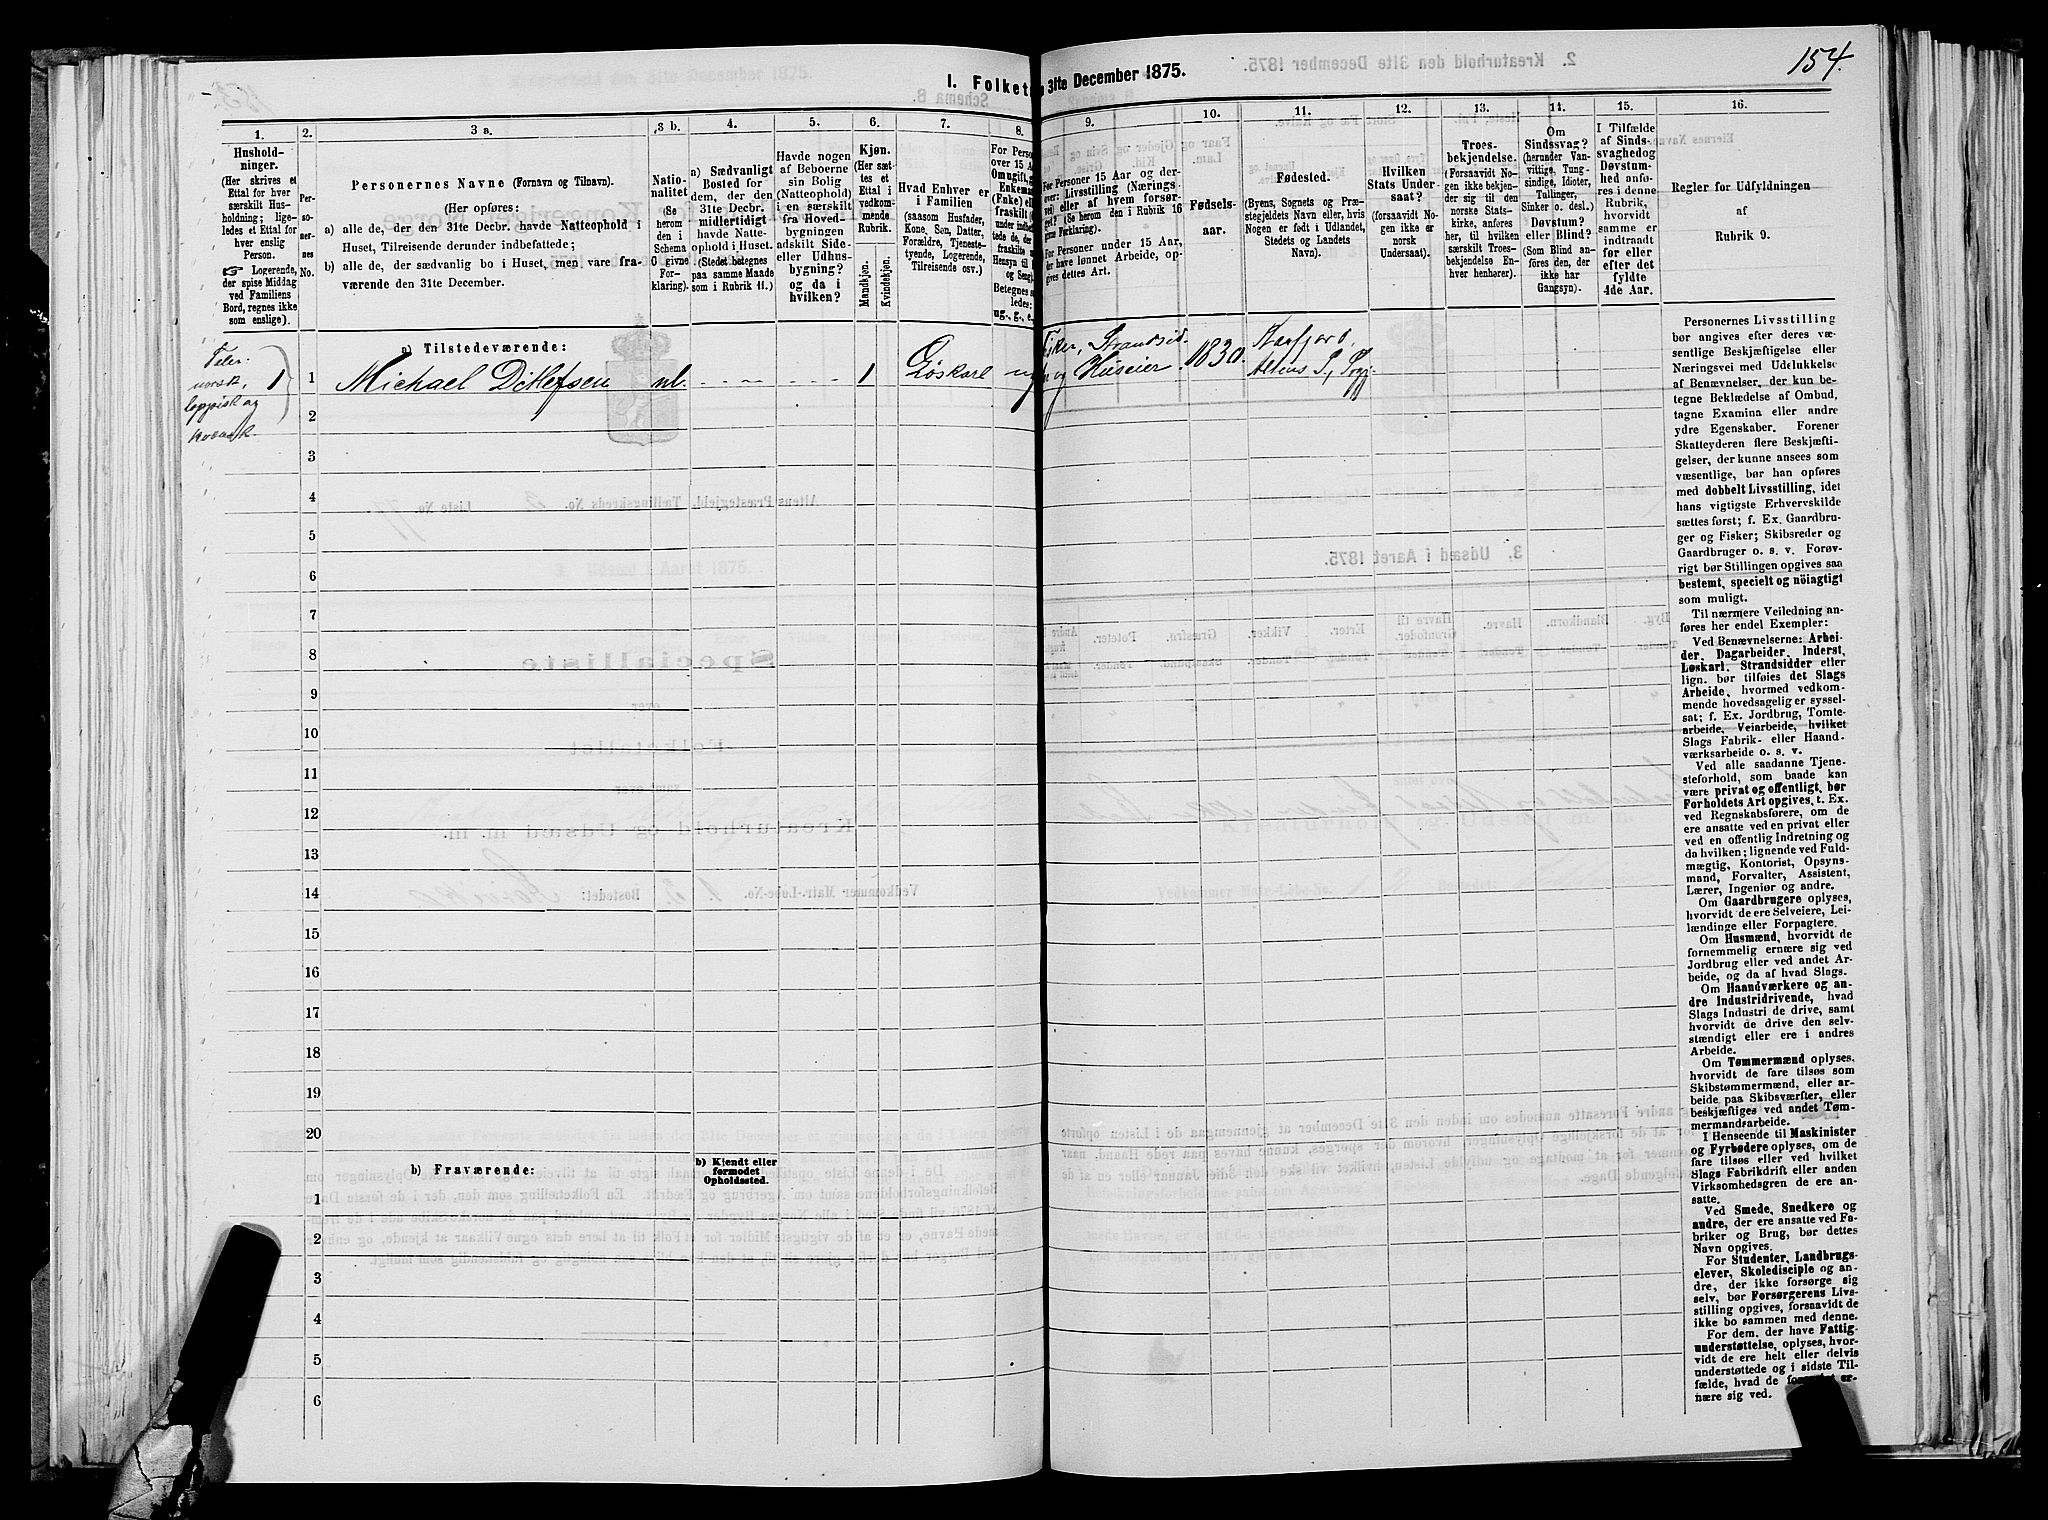 154.
I. Folket
31te December 1875.
1.
2.
3 a.
3 b.
4.
5.
6.
7.
8.
9.
10.
11.
12.
13.
14.
15.
16.
Hushold-
ninger.
(Her skrives et
Ettal for hver
særskilt Hus-
holdning; lige-
ledes et Ettal for
hver enslig
Person.
☞ Logerende,
der spise Middag
ved Familiens
Bord, regnes ikke
som enslige).
Per-
so-
ner-
nes
No.
Personernes Navne (Fornavn og Tilnavn).
(Her opføres:
a) alle de, der den 31te Decbr. havde Natteophold i
Huset, Tilreisende derunder indbefattede;
b) alle de, der sædvanlig bo i Huset, men vare fra-
værende den 31te December.
Natio-
nalitet
(Se
herom
den i
Schema
C givne
For-
klaring).
a) Sædvanligt
Bosted for
dem, der den
31te Decbr.
midlertidigt
havde Natte-
ophold i Huset.
(Stedet betegnes
paa samme Maade
som i Rubrik 11.)
Havde nogen
af Beboerne
sin Bolig
(Natteophold)
i en særskilt
fra Hoved-
bygningen
adskilt Side-
eller Udhus-
bygning?
og da i
hvilken?
Kjøn.
(Her sæt-
tes et
Ettal i
vedkom-
mende
Rubrik.
Mandkjøn.
Kvindekjøn.
Hvad Enhver er
i Familien
(saasom Husfader,
Kone, Søn, Datter,
Forældre, Tjeneste-
tyende, Logerende,
Tilreisende osv.)
For Person
over 15 A
Omugift,
Enkema
(Enke) el
fraskilt
under indbe
tede de,
fraskilte
Hensyn til
og Seng
Betegnes s
ledes:
ug., g., e.
For Personer 15 Aar og der-
over: Livsstilling (Nærings-
vei) eller af hvem forsør-
get? (Se herom den i Rubrik 16
givne Forklaring).
For Personer under 15 Aar,
der have lønnet Arbeide, op-
gives dettes Art.
Fødsels-
aar.
Fødested.
(Byens, Sognets og Præ-
stegjeldets Navn eller, hvis
Nogen er født i Udlandet,
Stedets og Landets
Navn).
Hvilken
Stats Under-
saat?
(forsaavidt No-
gen ikke er
norsk
Undersaat).
Troes-
bekjendelse.
(Forsaavidt No-
gen ikke bekjen-
der sig til den
norske Stats-
kirke, anføres
her, til hvilken
særskilt Troes-
bekjendelse En-
hver henhører).
Om
Sindssvag?
(herunder Van-
vittige, Tung-
sindige, Idioter,
Tullinger,
Sinker o. desl.)
Døvstum?
eller Blind?
(Som Blind an-
føres den, der
ikke har
Gangsyn).
I Tilfælde
af Sinds-
svaghed og
Døvstum-
hed anfø-
res i denne
Rubrik,
hvorvidt
samme er
indtraadt
før eller
efter det
fyldte
4de Aar.
Regler for Udfyldningen
af
Rubrik 9.
a) Tilstedeværende:
Taler
norsk,
lappisk og
kvensk.
1
1 Michael Ditlefsen nl. 1 Løskarl Fisker, Strandsid. og Huseier. 1830. Aarfjord, Altens P, Pgj.
2
3
4
5
6
7
8
9
10
11
12
13
14
15
16
17
18
19
20
b) Fraværende:
b) Kjendt eller
formodet
Opholdssted.
1
2
3
4
5
6
Personernes Livsstilling
bør angives efter deres væ-
sentlige Beskjæftigelse eller
Næringsvei med Udelukkelse
af Benævnelser, der kun be-
tegne Beklædelse af Ombud,
tagne Examina eller andre
ydre Egenskaber. Forener
Skatteyderen flere Beskjæfti-
gelser, der kunne ansees som
væsentlige, bør han opføres
med dobbelt Livsstilling, idet
hans vigtigste Erhvervskilde
sættes først; f. Ex. Gaardbru-
ger og Fisker; Skibsreder og
Gaardbruger o. s. v. Forøv-
rigt bør Stillingen opgives saa
bestemt, specielt og nöiagtigt
som muligt.
Til nærmere Veiledning an-
føres her endel Exempler:
Ved Benævnelserne: Arbei-
der, Dagarbeider, Inderst,
Løskarl, Strandsidder eller
lign. bør tilføies det Slags
Arbeide, hvormed vedkom-
mende hovedsagelig er syssel-
sat; f. Ex. Jordbrug, Tomte-
arbeide, Veiarbeide, hvilket
Slags Fabrik- eller Haand-
værksarbeide o. s. v.
Ved alle saadanne Tjene-
steforhold, som baade kan
være privat og offentligt, bør
Forholdets Art opgives, t. Ex.
ved Regnskabsførere, om de
ere ansatte ved en privat eller
ved en offentlig Indretning og
da hvilken; lignende ved Fuld-
mægtig, Kontorist, Opsyns-
mand, Forvalter, Assistent,
Lærer, Ingeniør og andre.
Om Gaardbrugere oplyses,
hvorvidt de ere Selveiere, Lei-
lændinge eller Forpagtere.
Om Husmænd, hvorvidt de
fornemmelig ernære sig ved
Jordbrug eller ved andet Ar-
beide, og da af hvad Slags.
Om Haandværkere og an-
dre Industridrivende, hvad
Slags Industri de drive, samt
hvorvidt de drive den selv-
stændigt eller ere i andres
Arbeide.
Om Tømmermænd oplyses,
hvorvidt de fare tilsøs som
Skibstømmermænd, eller ar-
beide paa Skibsværfter, eller
beskjæftiges ved andet Tøm-
mermandarbeide.
I Henseende til Maskinister
og Fyrbødere oplyses, om de
fare tilsøs eller ved hvilket
Slags Fabrikdrift eller anden
Virksomhedsgren de ere an-
satte.
Ved Smede, Snedkere og
andre, der ere ansatte ved Fa-
briker og Brug, bør dettes
Navn opgives.
For Studenter, Landbrugs-
elever, Skoledisciple og an-
dre, der ikke forsørge sig
selv, bør Forsørgerens Livs-
stilling opgives, forsaavidt de
ikke bo sammen med denne.
For dem, der have Fattig-
understøttelse, oplyses, hvor-
vidt de ere helt eller delvis
understøttede og i sidste Til-
fælde, hvad de er-
nære sig ved.